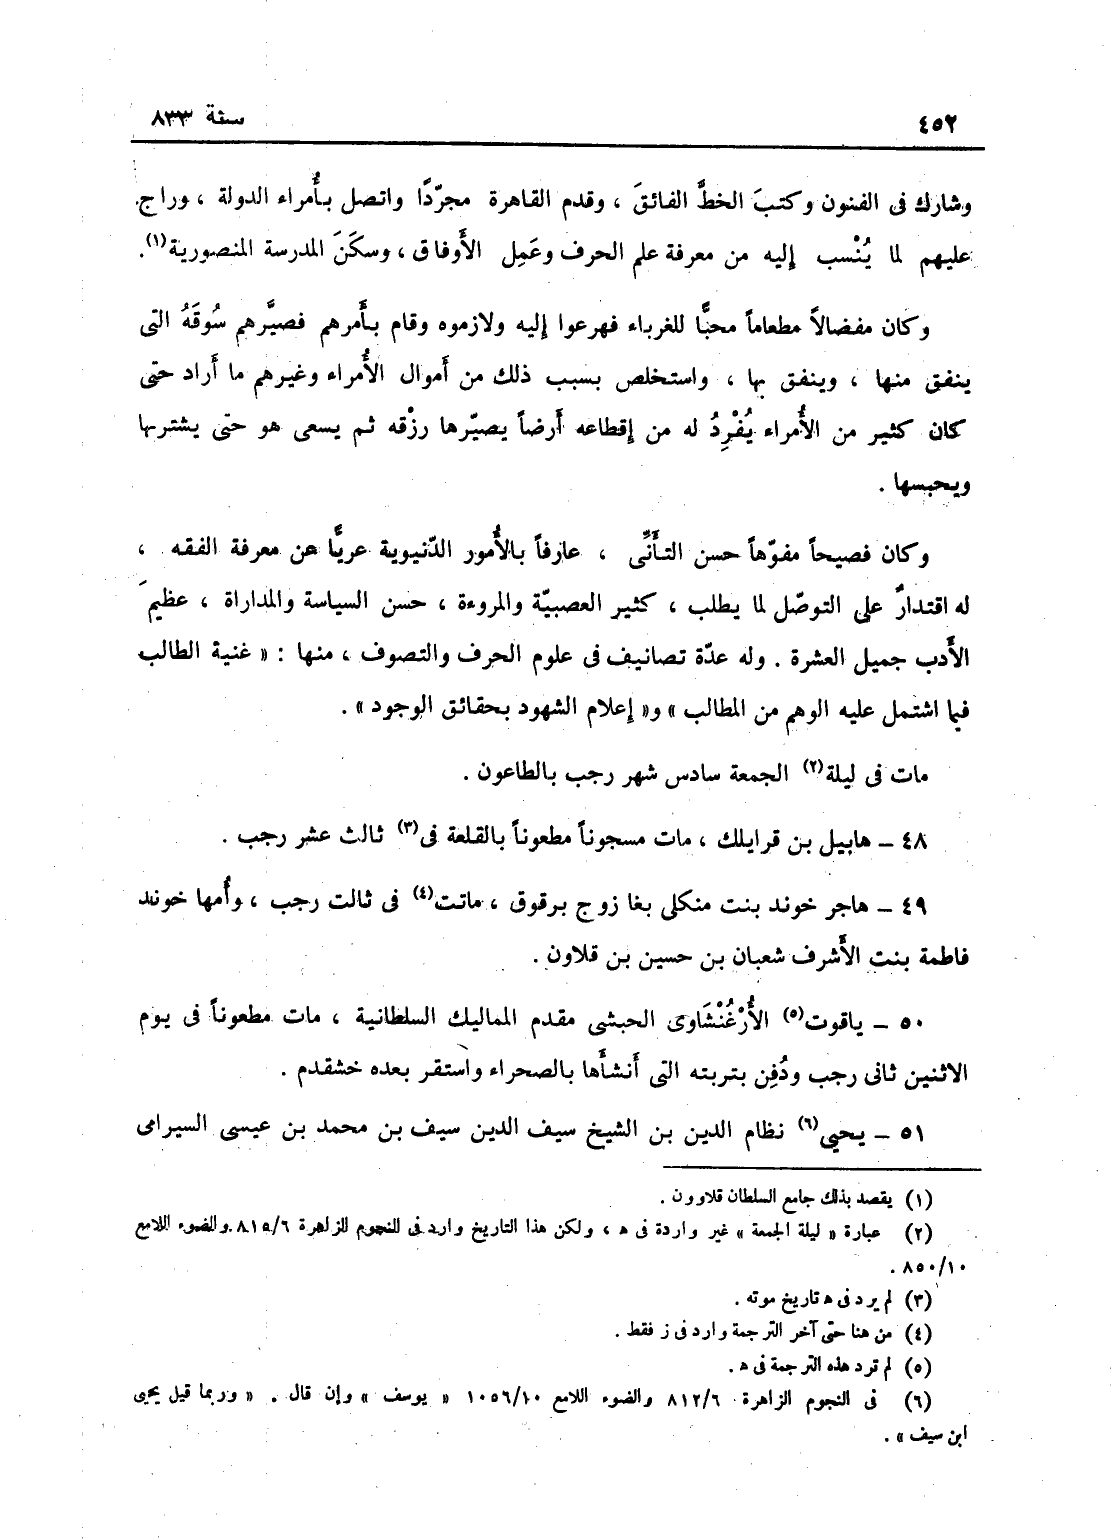 ٤٥٢ سنة ٨٣٣
وشارك فى الفنون وكتبَ الخطَّ الفائقَ ، وقدم القاهرة مجرّدًا واتصل بأُمراء الدولة ، وراج
عليهم لما يُنْسب إليه من معرفة علم الحرف وعَمِل الأَوفاق ، وسكَنَ المدرسة المنصورية(١).
وكان مفضالاً مطعاماً محبًّا للغرباء فهرعوا إليه ولازموه وقام بأَمرهم فصيَّرهم سُوقَهُ التى
ينفق منها ، وينفق بها ، واستخلص بسبب ذلك من أَموال الأُمراء وغيرهم ما أَراد حتى
كان كثير من الأُمراء يُفْرِدُ له من إقطاعه أَرضاً يصيّرها رزْقه ثم يسعى هو حتى يشتريها
ويحبسها .
وكان فصيحاً مفوّهاً حسن التأَنِّى ، عارفاً بالأُمور الدّنيوية عريًّا عن معرفة الفقه ،
له اقتدارٌ على التوصّل لما يطلب ، كثير العصبيّة والمروءة ، حسن السياسة والمداراة ، عظيمَ
الأَدب جميل العشرة . وله عدّة تصانيف فى علوم الحرف والتصوف ، منها : « غنية الطالب
فيما اشتمل عليه الوهم من المطالب » و« إعلام الشهود بحقائق الوجود » .
مات فى ليلة(٢) الجمعة سادس شهر رجب بالطاعون .
٤٨ – هابيل بن قرايلك ، مات مسجوناً مطعوناً بالقلعة فى(٣) ثالث عشر رجب .
٤٩ – هاجر خوند بنت منكلى بغا زوج برقوق ، ماتت(٤) فى ثالث رجب ، وأُمها خوند
فاطمة بنت الأَشرف شعبان بن حسين بن قلاون .
٥٠ – ياقوت(٥) الأَرْغُنْشَاوى الحبشى مقدم المماليك السلطانية ، مات مطعوناً فى يوم
الاثنين ثانى رجب ودُفِن بتربته التى أَنشأَها بالصحراء واستقر بعده خشقدم .
٥١ – يحيى(٦) نظام الدين بن الشيخ سيف الدين سيف بن محمد بن عيسى السيرامى
(١) يقصد بذلك جامع السلطان قلاوون .
(٢) عبارة « ليلة الجمعة » غير واردة فى ه ، ولكن هذا التاريخ وارد فى النجوم الزاهرة ٨١٥/٦ والضوء اللامع
٨٥٠/١٠ .
(٣) لم يرد فى ه تاريخ موته .
(٤) من هنا حتى آخر الترجمة وارد فى ز فقط .
(٥) لم ترد هذه الترجمة فى ه .
(٦) فى النجوم الزاهرة ٨١٢/٦ والضوء اللامع ١٠٥٦/١٠ « يوسف » وإن قال . « وربما قيل يحيى
ابن سيف » .